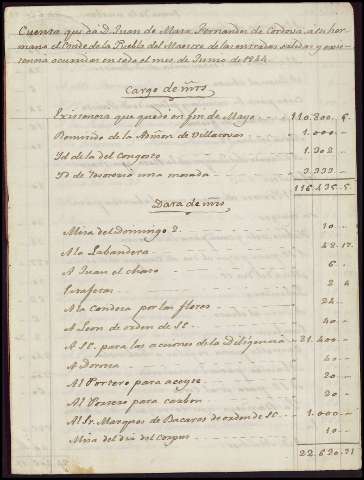 Cuenta que da D. Juan de Mata Fernandez de Cordova, a su her-
mano el Conde de la Puebla del Maestre de las entradas salidas y exis-
tencia ocurridas en todo el mes de Junio de 1844
Cargo de mrs
Existencia que quedó en fin de Mayo 110.800. 5.
Remitido de la Admon de Villacovas 1.000. —
Yd de la del Congosto 1.302 —
Yd de Tesoreria una mesada 3.333. —
116.435. 5.
Data de mrs
Misa del Domingo 2. 10 —
A la Labandera 48. 17.
A Juan el chico 6. —
Estafetas 2 4
A la Condesa por las flores 24 —
A Leon de orden de SC. 40 —
A SC. para las acciones de la Diligencia 21.400 —
A Dorotea 40 —
Al Portero para aceyte 20 —
Al Portero para carbon 20 —
Al Sr. Marques de Bacares de orden de SC 1.000 —
Misa del dia del Corpus 10 —
22.620. 21